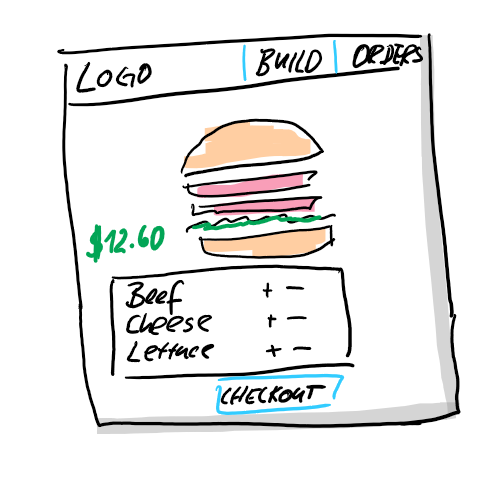 LOGO BUILD ORDERS
$12.60
Beef + -
Cheese + -
Lettuce + -
CHECKOUT